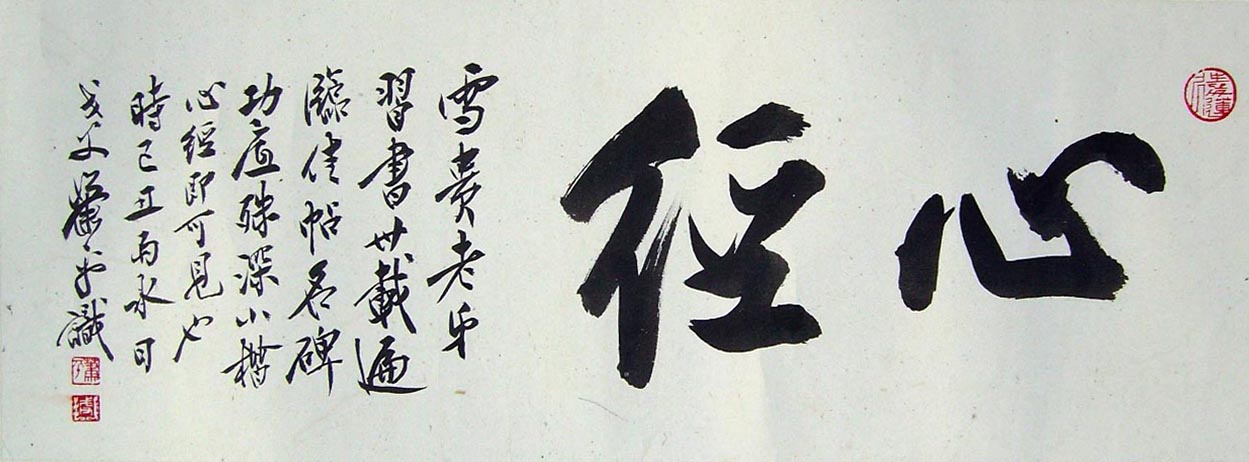 心經
雪貴老弟
習書卅載遍
臨佳帖名碑
功底殊深小楷
心經即可見也
時己丑雨水日
識